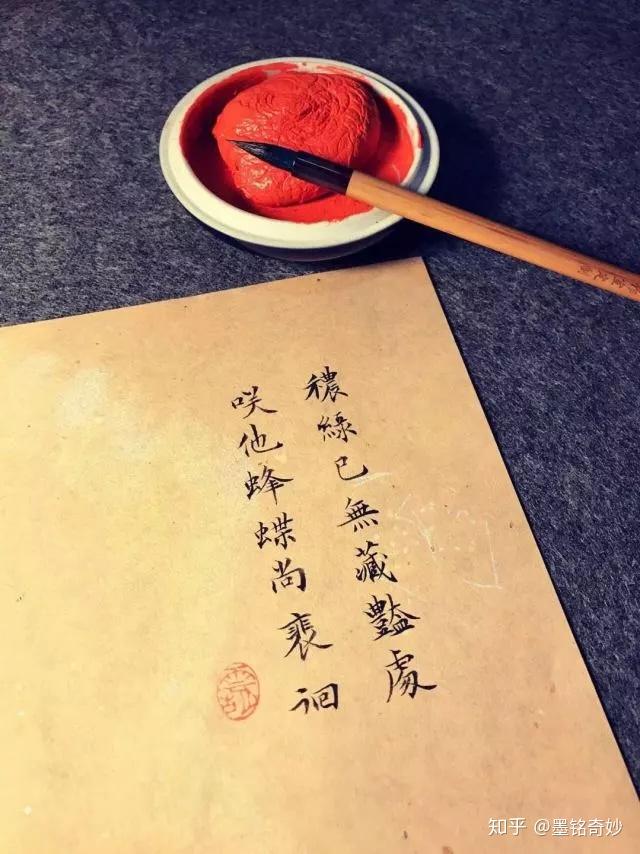 穠綠已無藏豔處
咲他蜂蝶尚裵徊
知乎 @墨铭奇妙